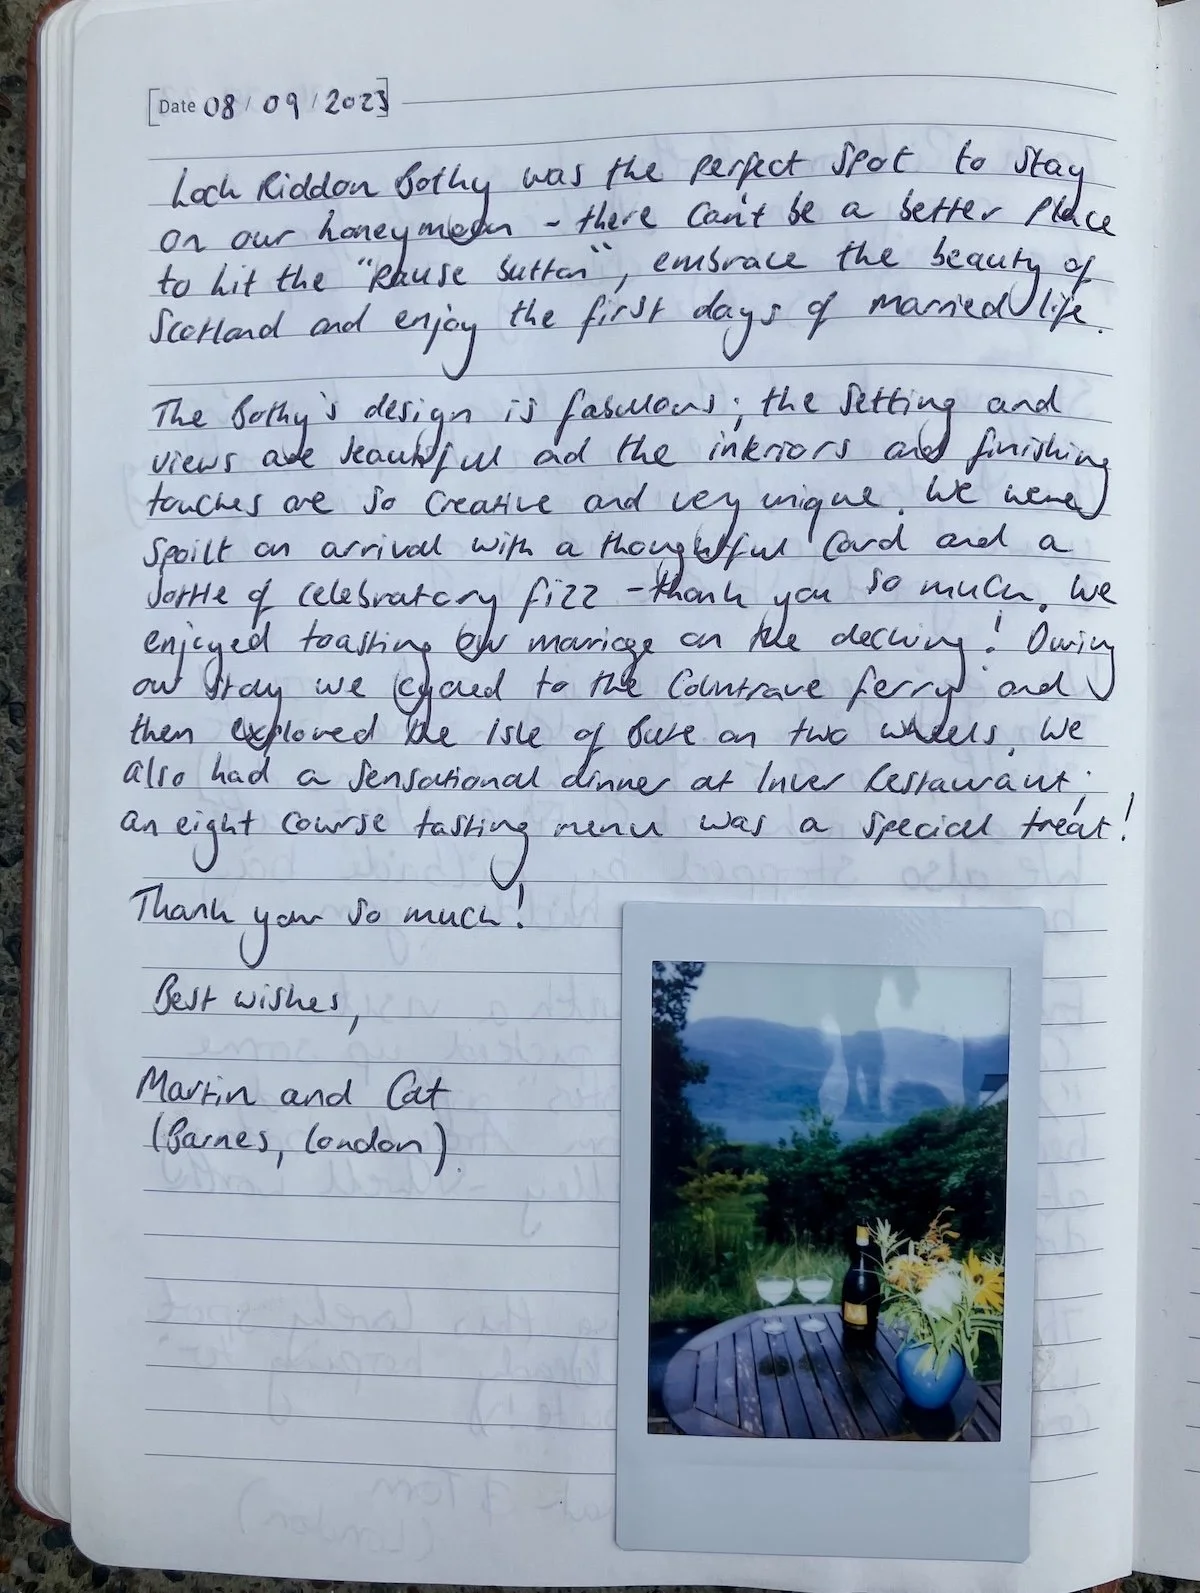 Date 08 / 09 / 2023
Loch Riddon Bothy was the perfect spot to stay
on our honeymoon - there can't be a better place
to hit the "pause button", embrace the beauty of
Scotland and enjoy the first days of married life.
The Bothy's design is fabulous; the setting and
views are beautiful and the interiors and finishing
touches are so creative and very unique. We were
spoilt on arrival with a thoughtful card and a
bottle of celebratory fizz - thank you so much. We
enjoyed toasting our marriage on the decking! During
our stay we cycled to the Colintraive ferry and
then explored the Isle of Bute on two wheels. We
also had a sensational dinner at Inver Restaurant;
an eight course tasting menu was a special treat!
Thank you so much!
Best wishes,
Martin and Cat
(Barnes, London).